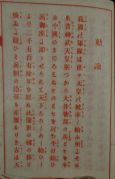 勅諭
我國の軍隊は世々天皇の統率し給ふ所にそ
ある昔神武天皇躬つから大伴物部の兵ともを
率ゐ中國のまつろはぬものともを討ち平け給ひ
高御座に即かせられて天下しろしめし給ひし
より二千五百有餘年を經ぬ此間世の樣の移り
換るに隨ひて兵制の沿革も亦屢なりき古は天